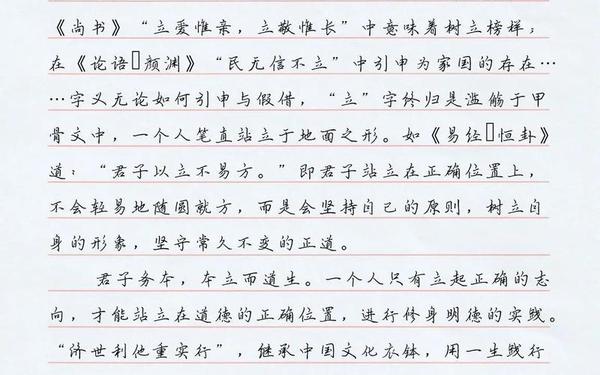 《尚书》“立爱惟亲，立敬惟长”中意味着树立榜样；
在《论语▯颜渊》“民无信不立”中引申为家国的存在…
…字义无论如何引申与假借，“立”字终归是滥觞于甲
骨文中，一个人笔直站立于地面之形。如《易经▯恒卦》
道：“君子以立不易方。”即君子站立在正确位置上，
不会轻易地随圆就方，而是会坚持自己的原则，树立自
身的形象，坚守常久不变的正道。
君子务本，本立而道生。一个人只有立起正确的志
向，才能站立在道德的正确位置，进行修身明德的实践。
“济世利他重实行”，继承中国文化衣钵，用一生践行